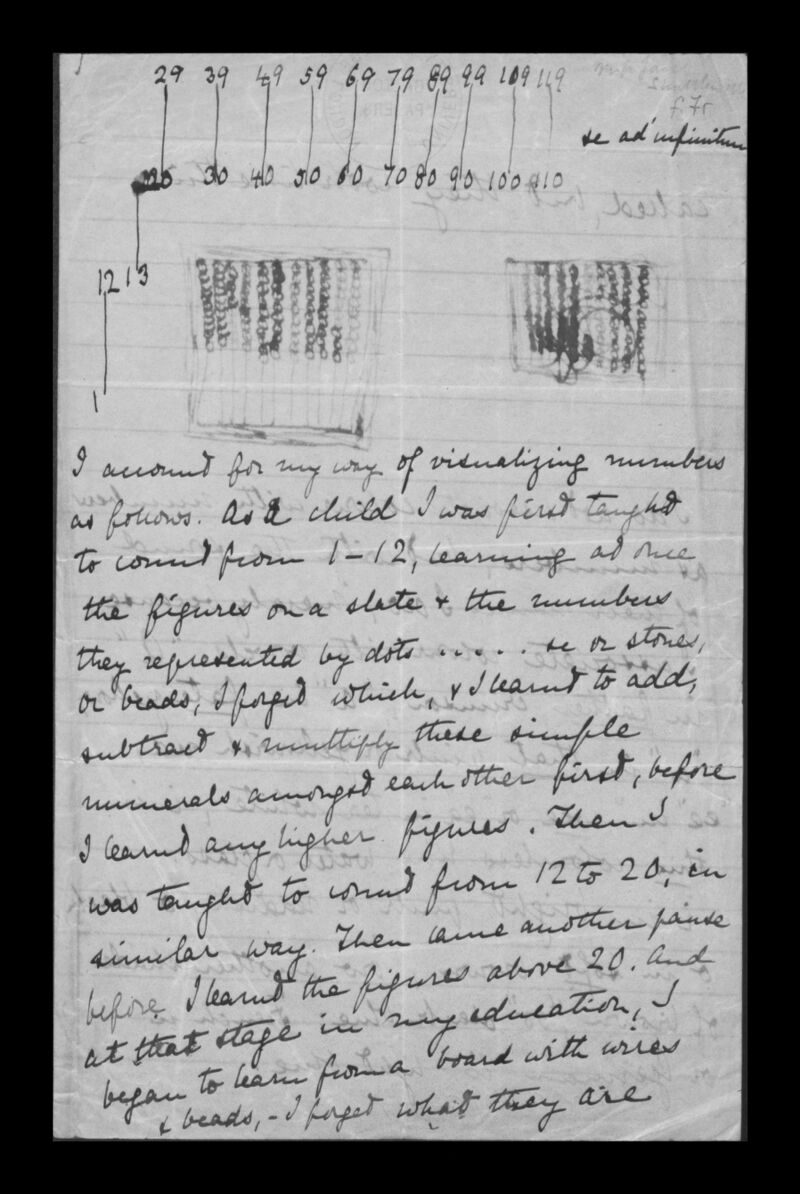 29 39 49 59 69 79 89 99 109 119
f 7r
se ad infinitum
20 30 40 50 60 70 80 90 100 110
12 13
1
I account for my way of visualizing numbers
as follows. As a child I was first taught
to count from 1–12, learning at once
the figures on a slate & the numbers
they represented by dots ..... se or stones,
or beads, I forget which, & I learnt to add,
subtract & multiply these simple
numerals amongst each other first, before
I learnt any higher figures. Then I
was taught to count from 12 to 20, in
similar way. Then came another pause
before I learnt the figures above 20. And
at that stage in my education, I
began to learn from a board with wires
& beads, – I forget what they are